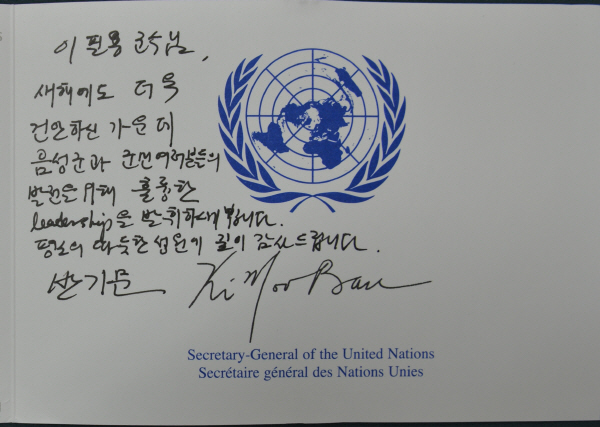 이 필용 군수님,
새해에도 더욱
건안하신 가운데
음성군과 군민여러분들의
발전을 위해 훌륭한
leadership을 발휘하시게 됩니다.
평소의 따뜻한 성원에 깊이 감사드립니다.
반기문 Ki Moon Ban
Secretary-General of the United Nations
Secrétaire général des Nations Unies